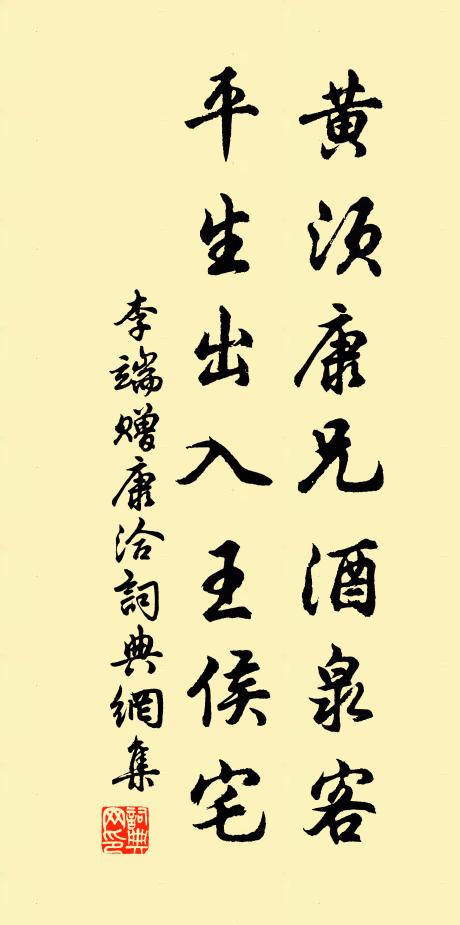 黄须康兄酒泉客
平生出入王侯宅
李端赠康洽詞典網集
詞典网印